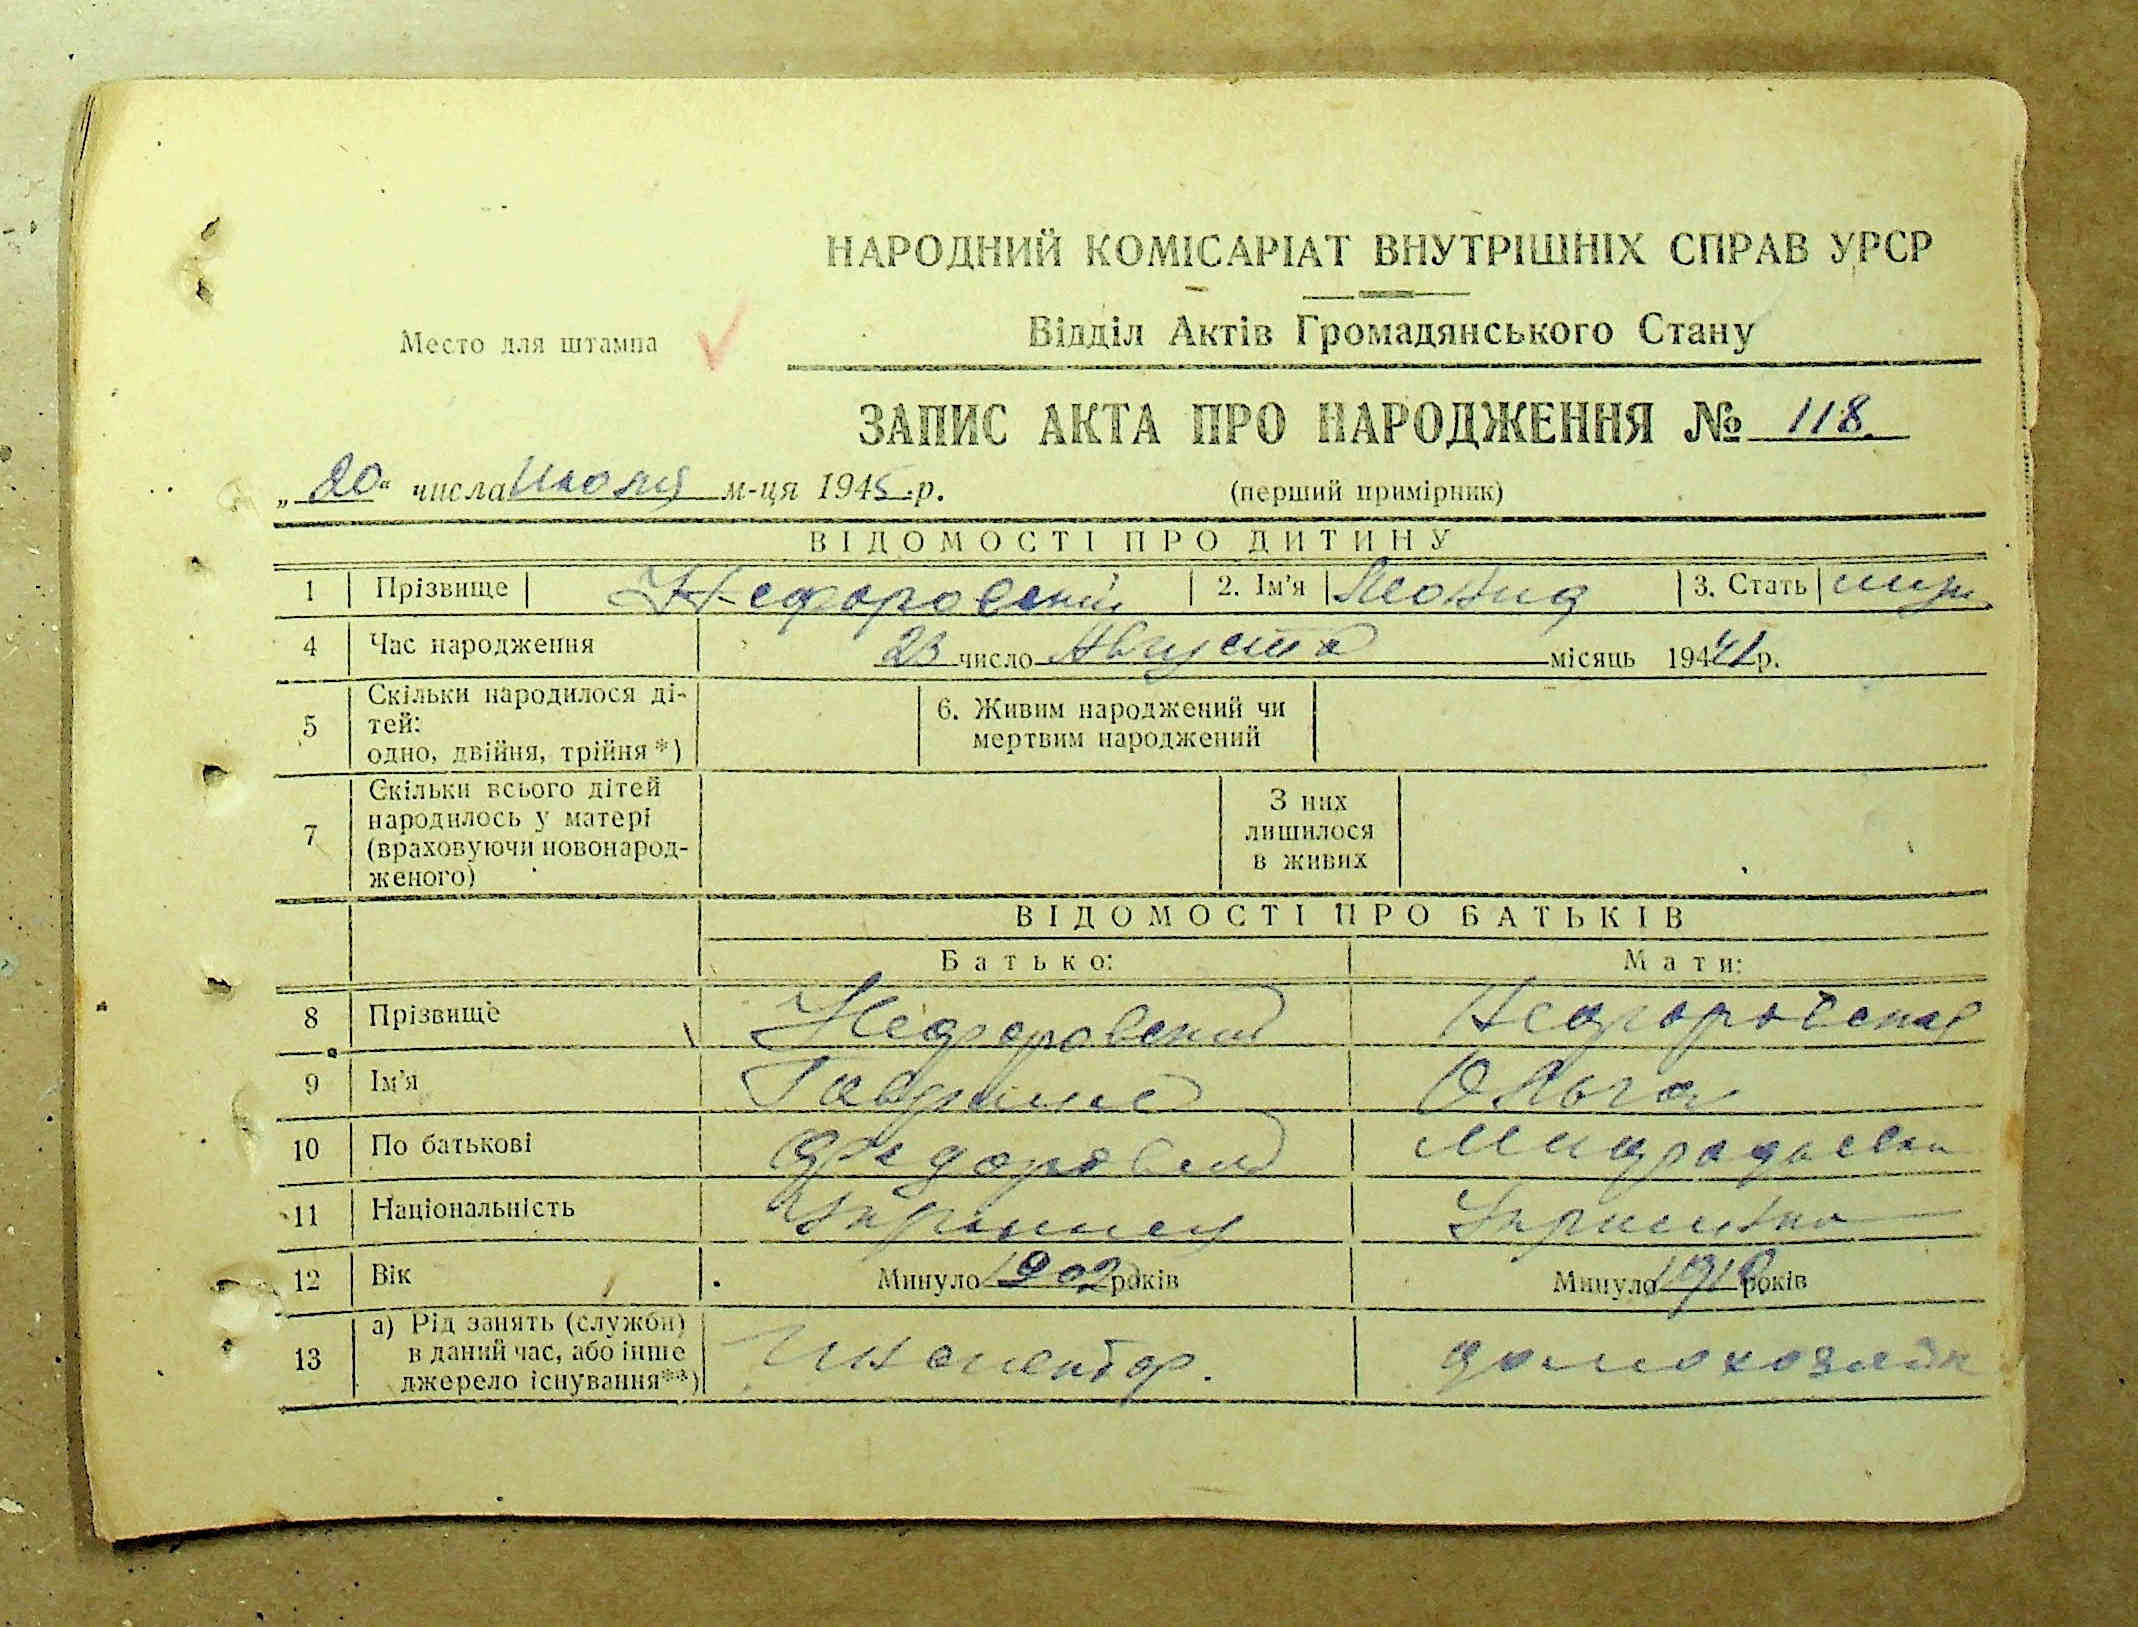 НАРОДНИЙ КОМІСАРІАТ ВНУТРІШНІХ СПРАВ УРСР
Место для штампа
Відділ Актів Громадянського Стану
ЗАПИС АКТА ПРО НАРОДЖЕННЯ № 118
„20“ числа Июля м-ця 1945 р. (перший примірник)
ВІДОМОСТІ ПРО ДИТИНУ
1 Прізвище Нефоровский 2. Ім'я Леонид 3. Стать муж
4 Час народження 23 число Августа місяць 1941 р.
5 Скільки народилося ді-
тей:
одно, двійня, трійня *)
6. Живим народжений чи
мертвим народжений
7 Скільки всього дітей
народилось у матері
(враховуючи новонарод-
женого)
З них
лишилося
в живих
ВІДОМОСТІ ПРО БАТЬКІВ
Батько: Мати:
8 Прізвище Нефоровский Нефоровская
9 Ім'я Гавриил Ольга
10 По батькові
11 Національність Украинец Украинка
12 Вік Минуло 1902 років Минуло 1910 років
13 а) Рід занять (служби)
в даний час, або інше
джерело існування**)
Инспектор. домохозяйк